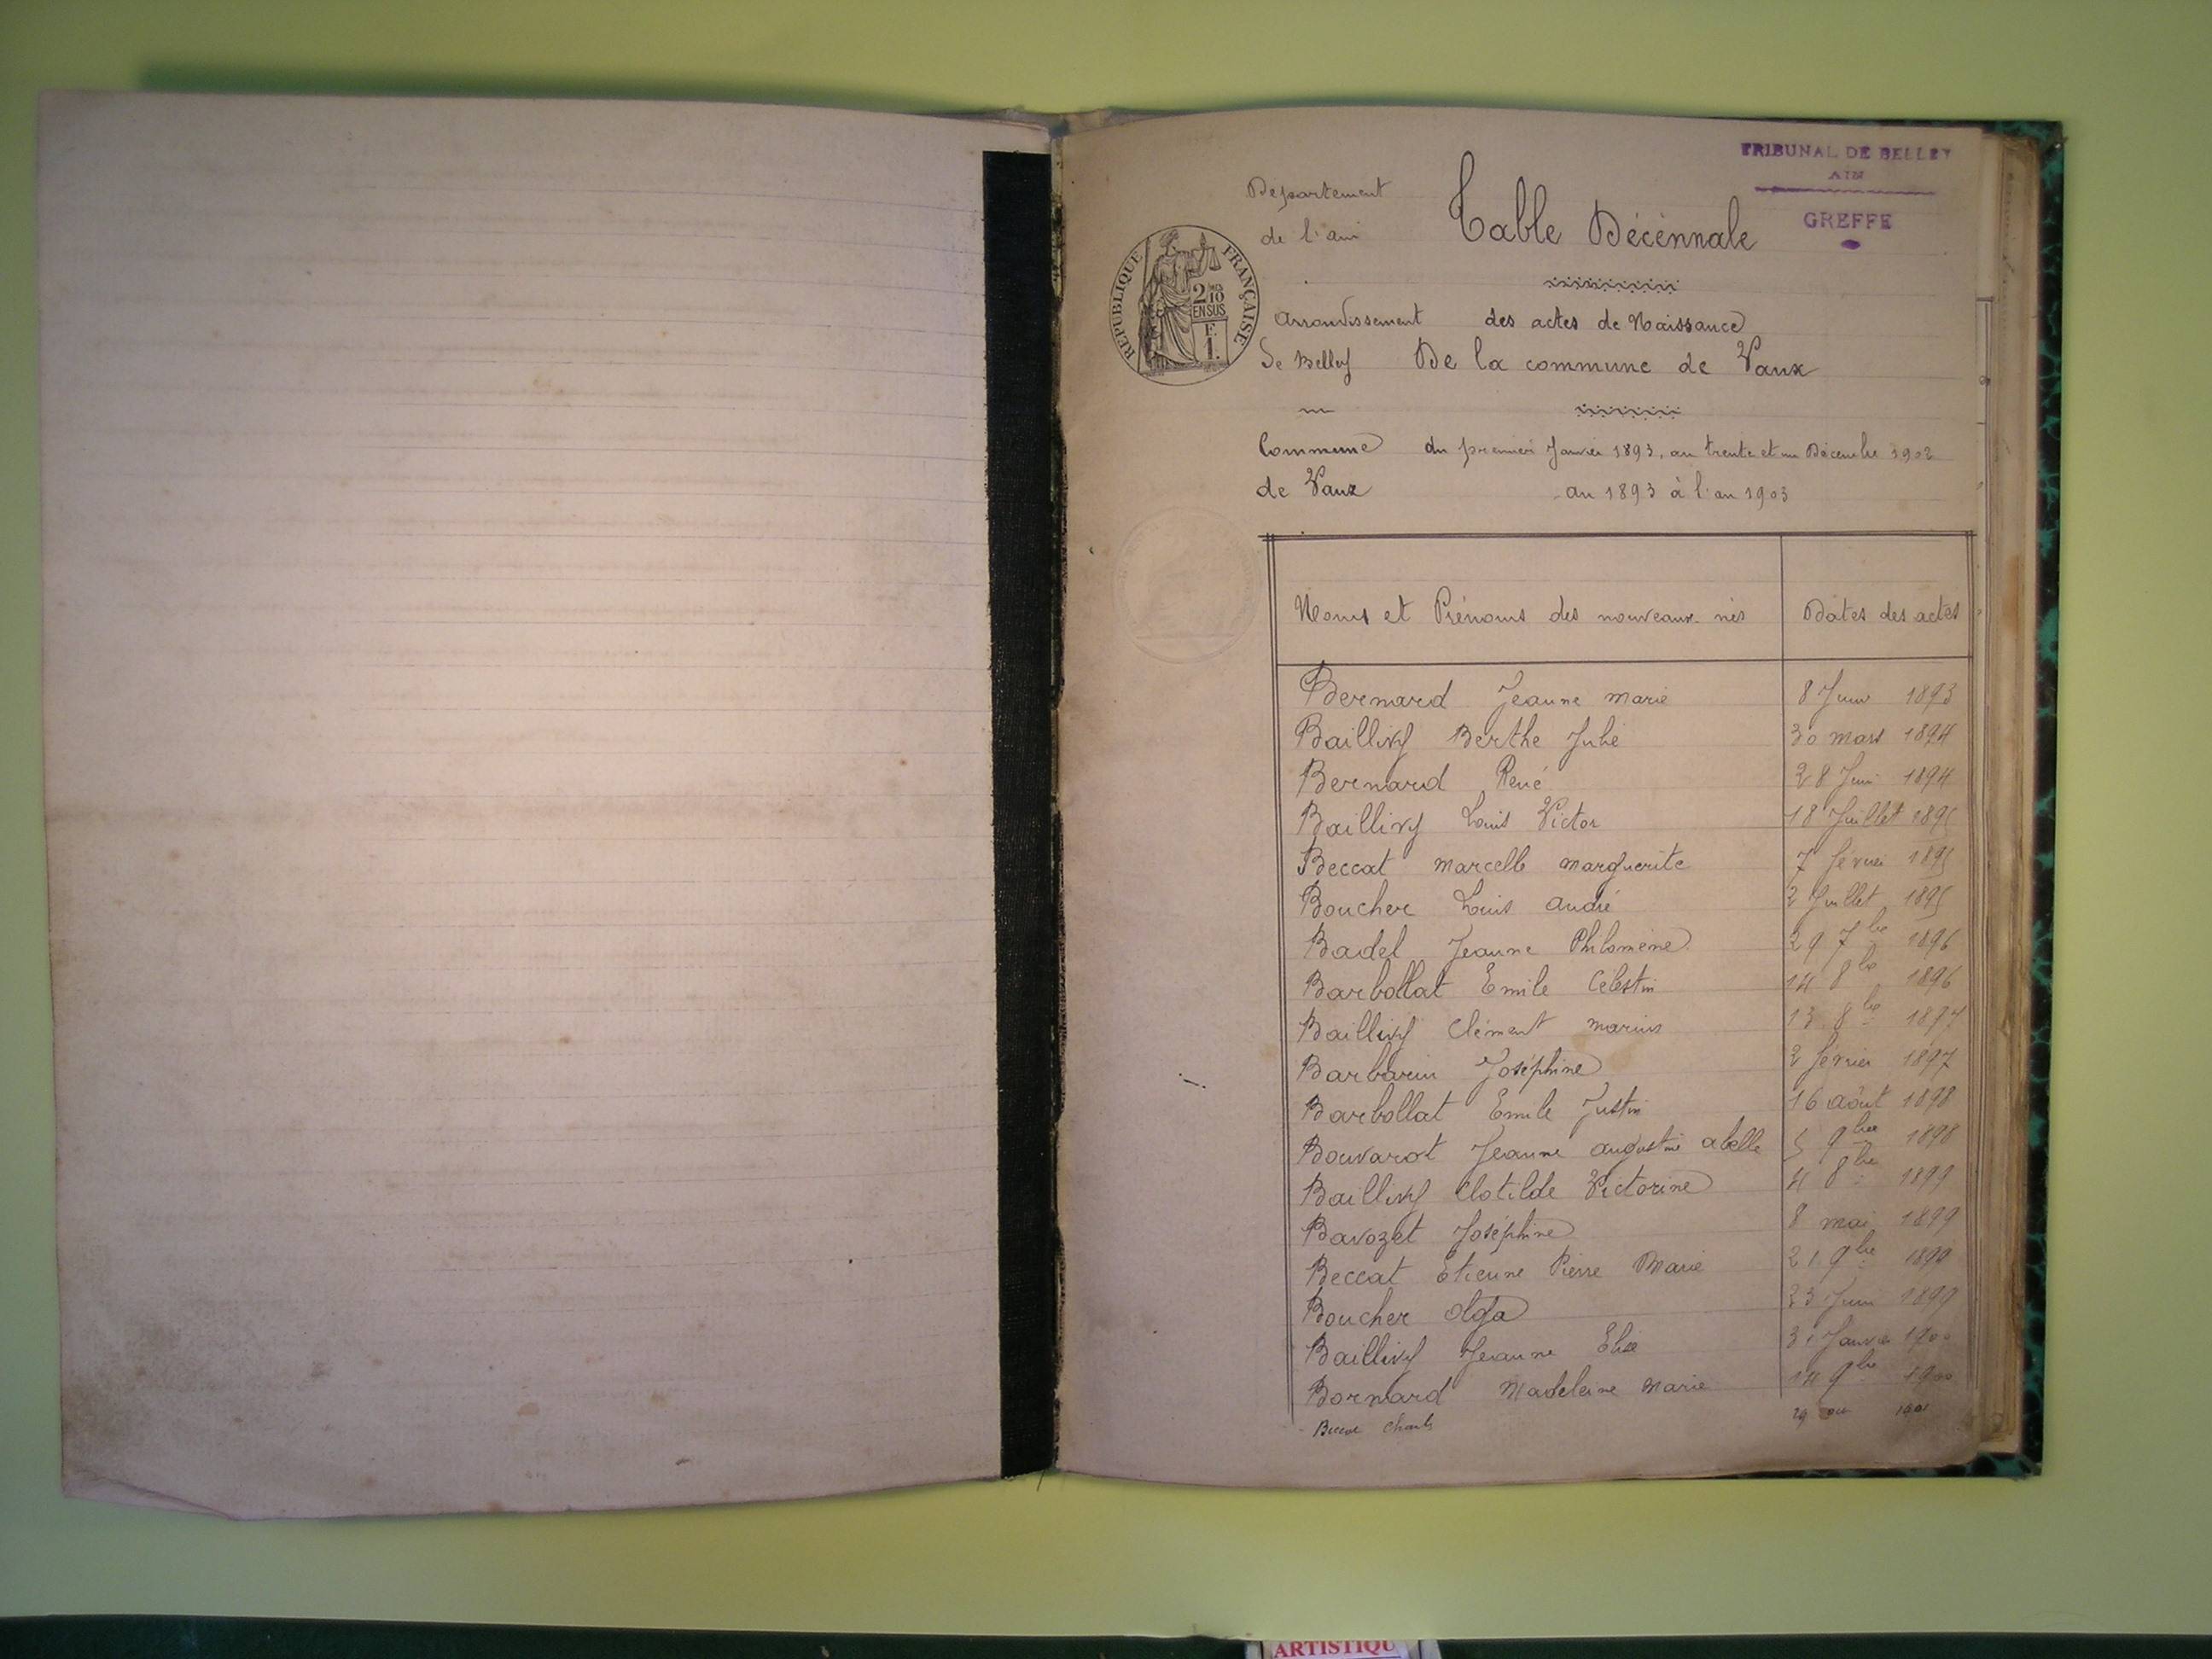 TRIBUNAL DE BELLEY
AIN
GREFFE
Département
de l'ain
Table Décénnale
REPUBLIQUE FRANÇAISE
2/10
EN SUS
F.
1.
Arrondissement des actes de Naissance
de Belley De la commune de Vaux
Commune du premier Janvier 1893, au trente et un Décembre 1902
de Vaux an 1893 à l'an 1903
Noms et Prénoms des nouveaux-nés Dates des actes
Bernard Jeanne marie 8 Juin 1893
Baillivy Berthe Julie 30 mars 1894
Bernard René 28 Juin 1894
Baillivy Louis Victor 18 Juillet 1895
Beccat marcelle marguerite 7 février 1895
Boucher Louis andré 2 Juillet 1895
Badel Jeanne Philomène 29 7bre 1896
Barbollat Emile Célestin 14 8bre 1896
Baillivy Clément marius 13 8bre 1897
Barbarin Joséphine 2 février 1897
Barbollat Emile Justin 16 août 1898
Bouvarot Jeanne augustine abelle 5 9bre 1898
Baillivy Clotilde Victorine 4 8bre 1899
Bavozet Joséphine 8 mai 1899
Beccat Etienne Pierre Marie 21 9bre 1899
Boucher olga 23 Juin 1899
Baillivy Jeanne Elise 31 Janvier 1900
Bornard Madeleine marie 14 9bre 1900
Charles 29 1901
ARTISTIQU